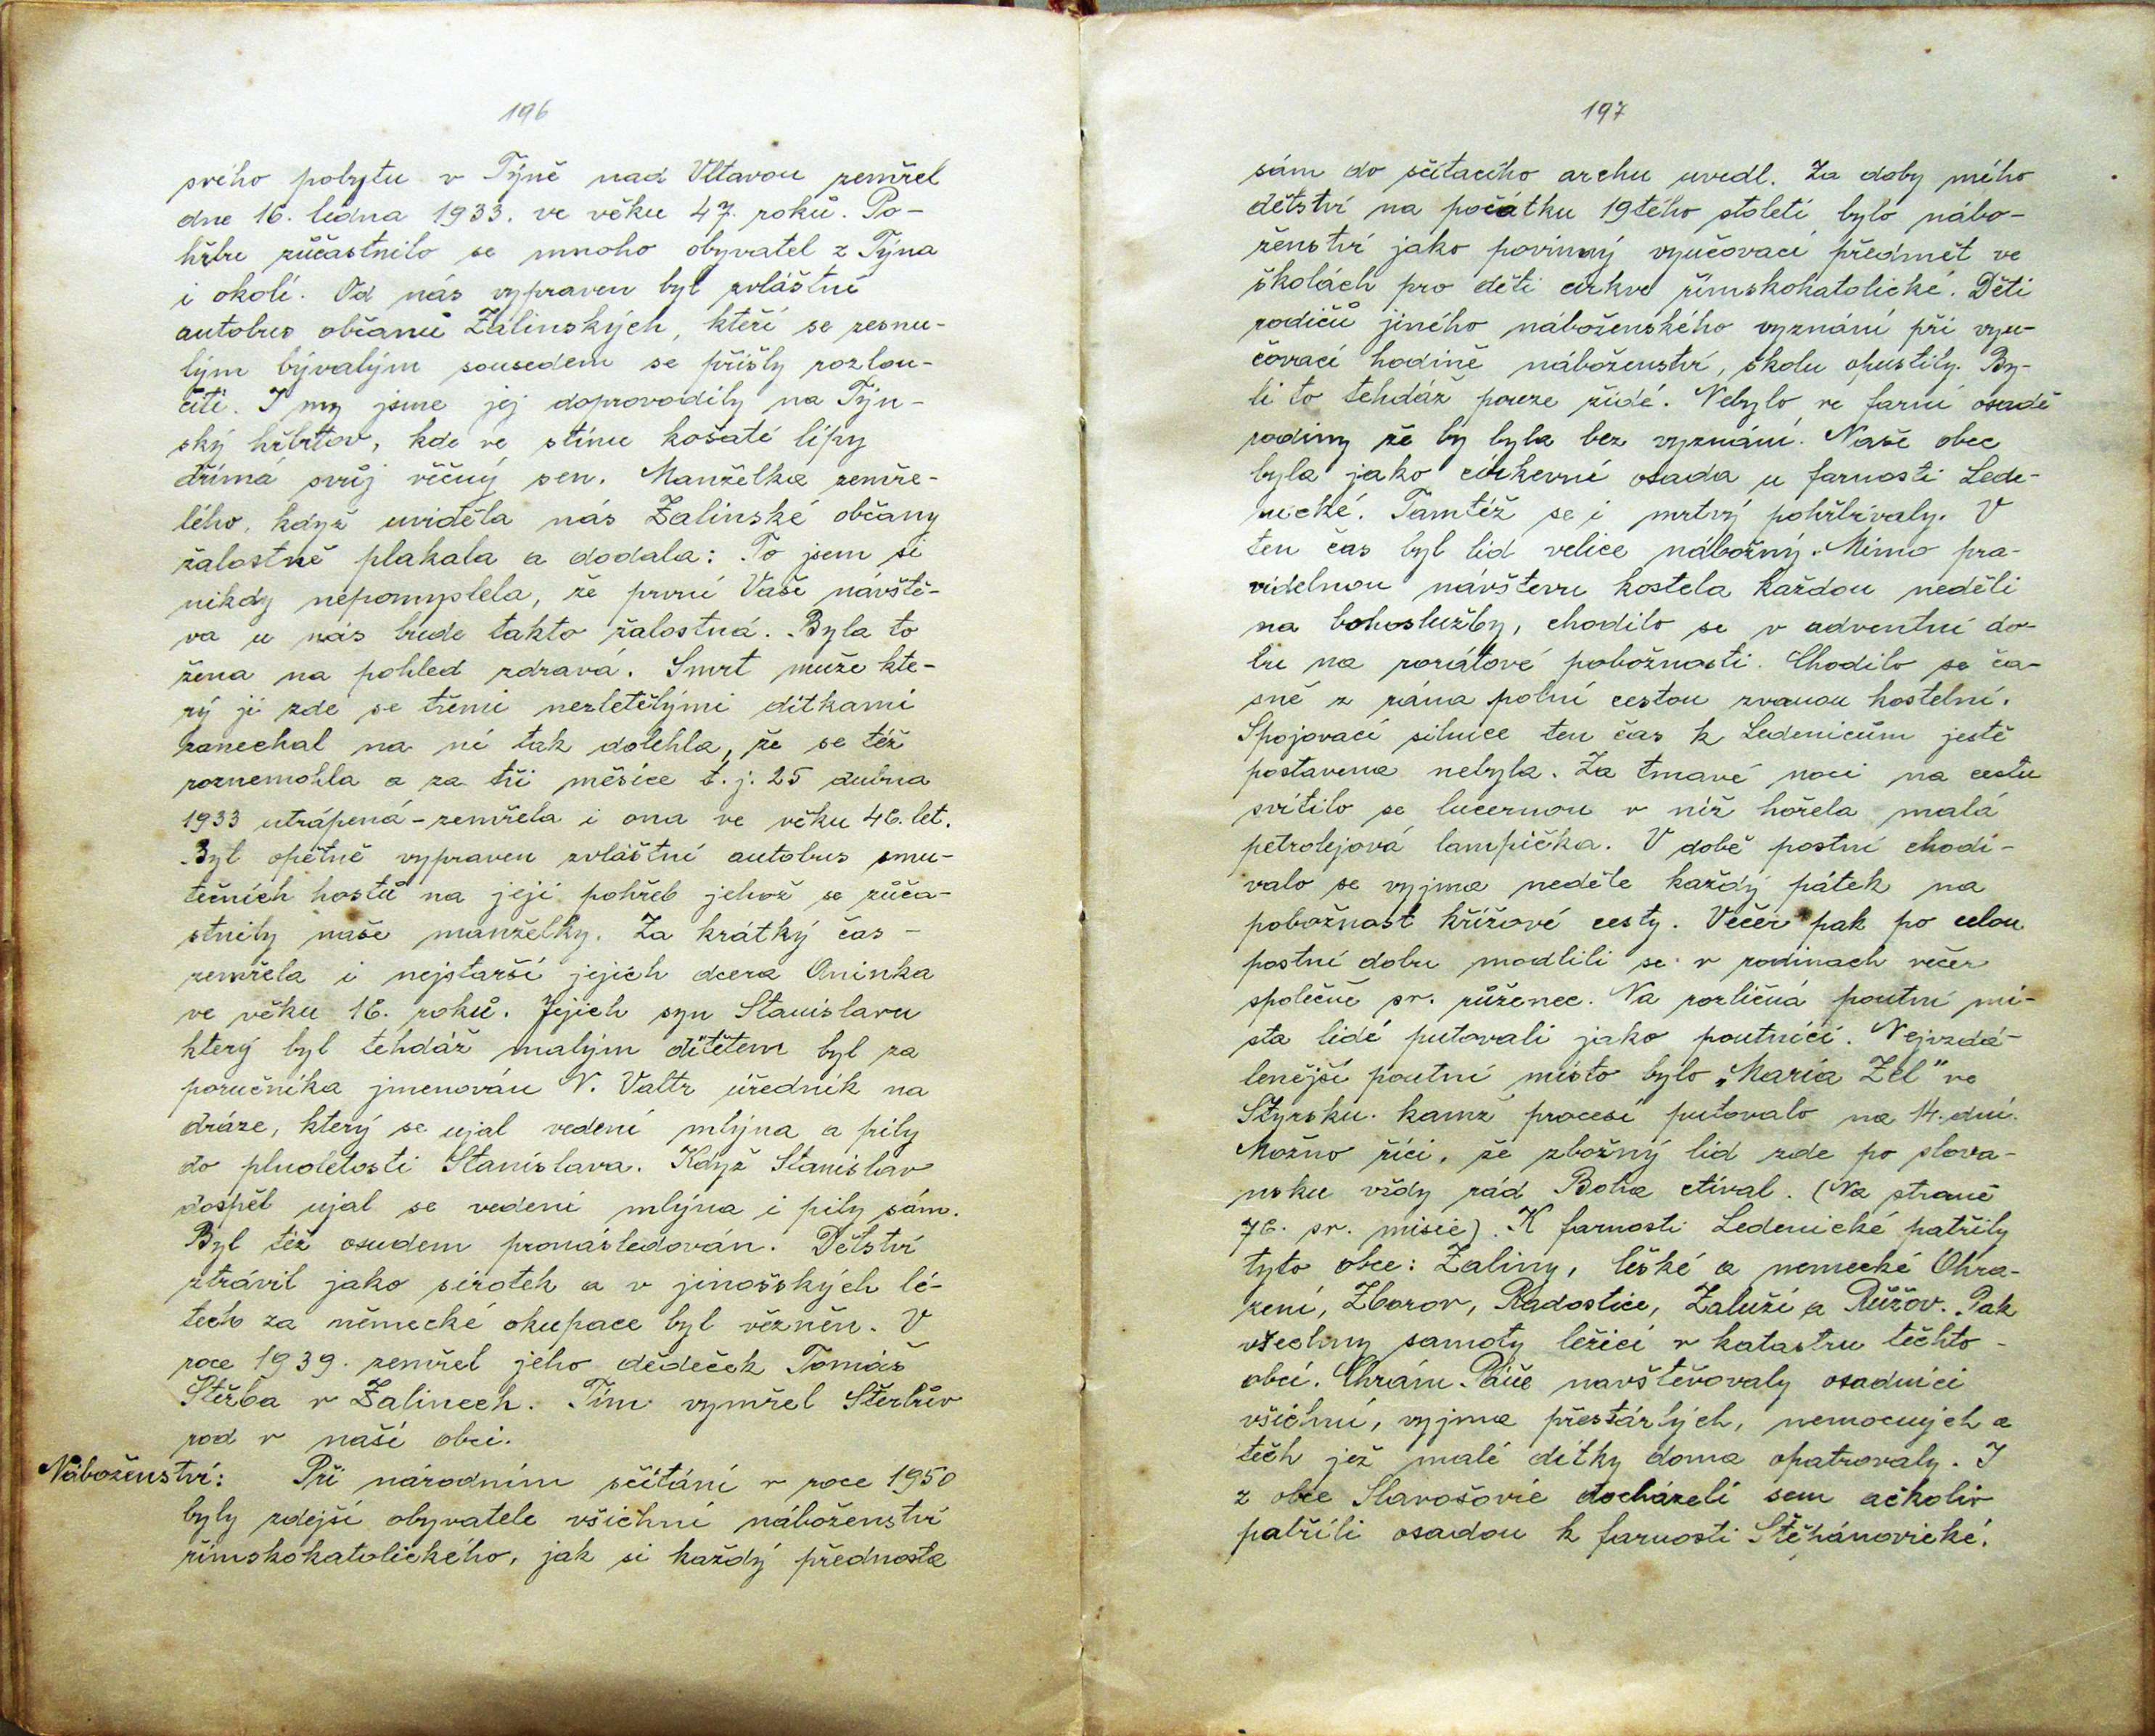 196
svého pobytu v Týně nad Vltavou zemřel
dne 16. ledna 1933. ve věku 47. roků. Po-
hřbu zůčastnilo se mnoho obyvatel z Týna
i okolí. Od nás vypraven byl zvláštní
autobus občanů Žalinských, kteří se zesnu-
lým bývalým sousedem se přišly rozlou-
čiti. I my jsme jej doprovodily na Týn-
ský hřbitov, kde ve stínu košaté lípy
dřímá svůj věčný sen. Manželka zemře-
lého, když uviděla nás Žalinské občany
žalostně plakala a dodala: To jsem si
nikdy nepomyslela, že první Vaše návště-
va u nás bude takto žalostná. Byla to
žena na pohled zdravá. Smrt muže kte-
rý ji zde se třemi nezletělými dítkami
zanechal na ní tak dolehla, že se též
roznemohla a za tři měsíce t. j. 25 dubna
1933 utrápená - zemřela i ona ve věku 46. let.
Byl opětně vypraven zvláštní autobus smu-
tečních hostů na její pohřeb jehož se zůča-
stnily naše manželky. Za krátký čas -
zemřela i nejstarší jejich dcera Aninka
ve věku 16. roků. Jejich syn Stanislavu
který byl tehdáž malým dítětem byl za
poručníka jmenován V. Valtr úředník na
dráze, který se ujal vedení mlýna a pily
do plnoletosti Stanislava. Když Stanislav
dospěl ujal se vedení mlýna i pily sám.
Byl též osudem pronásledován. Dětství
ztrávil jako sirotek a v jinošských lé-
tech za německé okupace byl vězněn. V
roce 1939. zemřel jeho dědeček Tomáš
Štěrba v Žalinech. Tím vymřel Štěrbův
rod v naší obci.
Náboženství: Při národním sčítání v roce 1950
byly zdejší obyvatele všichni náboženství
římskokatolického, jak si každý přednosta
197
sám do sčítacího archu uvedl. Za doby mého
dětství na počátku 19tého století bylo nábo-
ženství jako povinný vyučovací předmět ve
školách pro děti církve římskokatolické. Děti
rodičů jiného náboženského vyznání při vyu-
čovací hodině náboženství, školu opustily. By-
li to tehdáž pouze židé. Nebylo ve farní osadě
rodiny že by byla bez vyznání. Naše obec
byla jako církevní osada u farnosti Lede-
nické. Tamtéž se i mrtvý pohřbívaly. V
ten čas byl lid velice nábožný. Mimo pra-
videlnou návštevu kostela každou neděli
na bohoslužby, chodilo se v adventní do-
bu na rorátové pobožnosti. Chodilo se ča-
sně z rána polní cestou zvanou kostelní.
Spojovací silnice ten čas k Ledenicům jestě
postavena nebyla. Za tmavé noci na cestu
svítilo se lucernou v níž hořela malá
petrolejová lampička. V době postní chodí-
valo se vyjma neděle každý pátek na
pobožnost křížové cesty. Večer pak po celou
postní dobu modlili se v rodinach večer
společně sv. růženec. Na rozličná poutní mí-
sta lidé putovali jako poutníci. Nejvzdá-
lenější poutní místo bylo „Maria Zel" ve
Štyrsku. kamž procesí putovalo na 14. dní.
Možno říci, že zbožný lid zde po slova-
nsku vždy rád Boha ctíval. (Na straně
76. sv. misie). K farnosti Ledenické patřily
tyto obce: Žaliny, české a nemecké Ohra-
zení, Zborov, Radostice, Zaluží a Růžov. Pak
všechny samoty ležící v katastru těchto -
obcí. Chrám Páně navštěvovaly osadníci
všichni, vyjma přestárlých, nemocných a
těch jež malé dítky doma opatrovaly. I
z obce Slavošovic docházeli sem ačkoliv
patřili osadou k farnosti Štěpánovické.